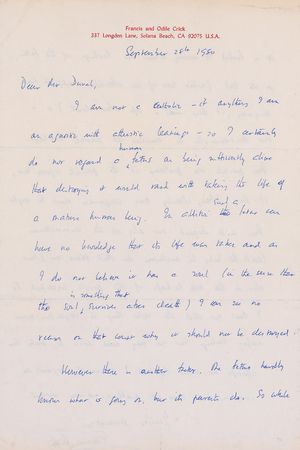 Francis and Odile Crick
337 Longden Lane, Solana Beach, CA 92075 U.S.A.
September 28th 1980
Dear Mr
I am not a catholic - if anything I am
an agnostic with atheistic leanings - so I certainly
human
do not regard a fetus as being sufficiently alive
that destroying it would rank with taking the life of
a mature human being. In addition such a fetus can
have no knowledge that its life was taken and as
I do not believe it has a soul (in the sense that
is something that
the soul survives after death) I can see no
reason on that count why it should not be destroyed.
However there is another factor. The fetus hardly
knows what is going on, but its parents do. So while